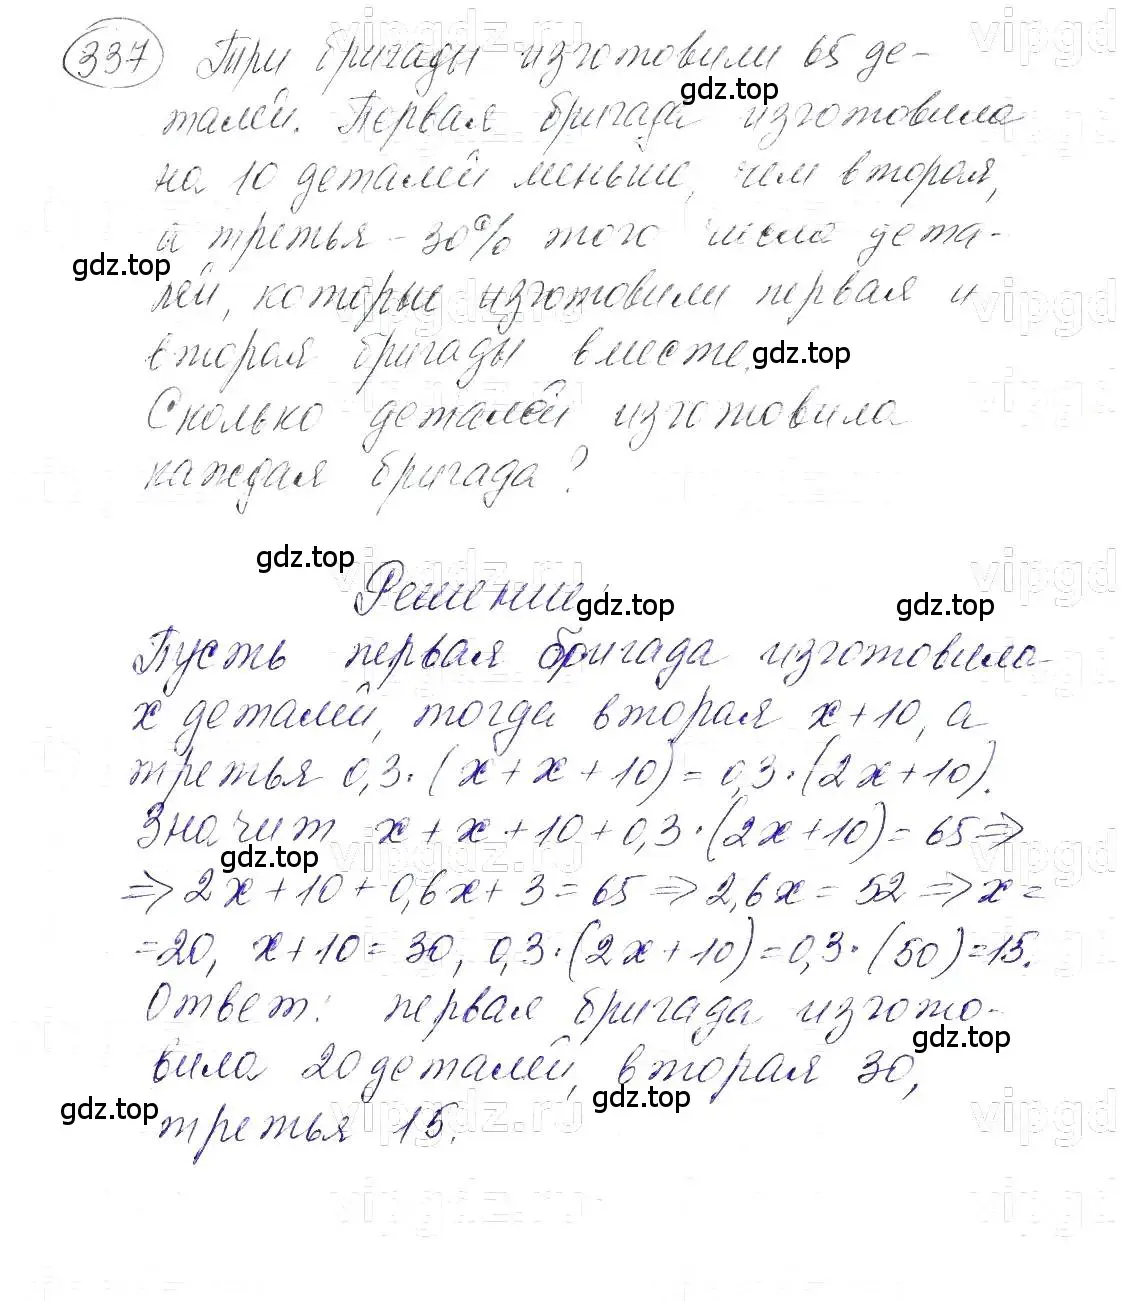 337 Три бригады изготовили 65 де-
gdz.top
талей. Первая бригада изготовила
на 10 деталей меньше, чем вторая,
а третья - 30% того числа дета-
gdz.top
лей, которые изготовили первая и
вторая бригады вместе.
gdz.top
Сколько деталей изготовила
каждая бригада?
gdz.top
Решение.
gdz.top
gdz.top
Пусть первая бригада изготовила
x деталей, тогда вторая x+10, а
третья 0,3·(x+x+10)=0,3·(2x+10).
Значит x+x+10+0,3·(2x+10)=65⇒
gdz.top
⇒2x+10+0,6x+3=65⇒2,6x=52⇒x=
=20, x+10=30, 0,3·(2x+10)=0,3·(50)=15.
Ответ: первая бригада изгото-
gdz.top
вила 20 деталей, вторая 30,
gdz.top
gdz.top
третья 15.